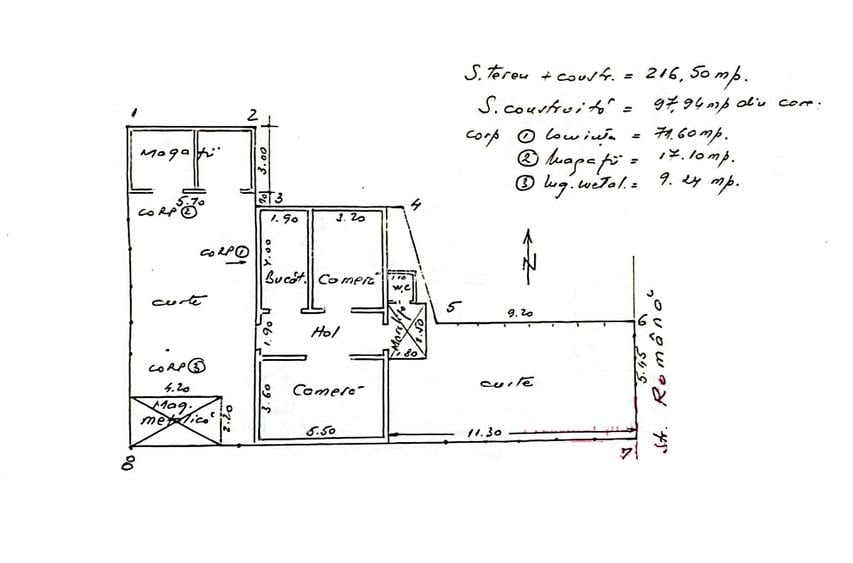 S. teren + constr. = 216,50 mp.
S. construită = 97,94 mp din care:
corp ① locuința = 71.60 mp.
② Magazii = 17.10 mp.
③ Mg. metal. = 9.24 mp.
1
2
Magazii
3.00
5.70
CORP ②
70
3
4
1.90
3.20
CORP ①
4.00
Bucăt.
Cameră
1.10
W.C
N
curte
5
9.20
6
Hol
1.90
2.50
1.80
5.45
Str. Română
CORP ③
4.20
Mag.
metalică
2.20
Cameră
3.60
5.50
curte
11.30
7
8